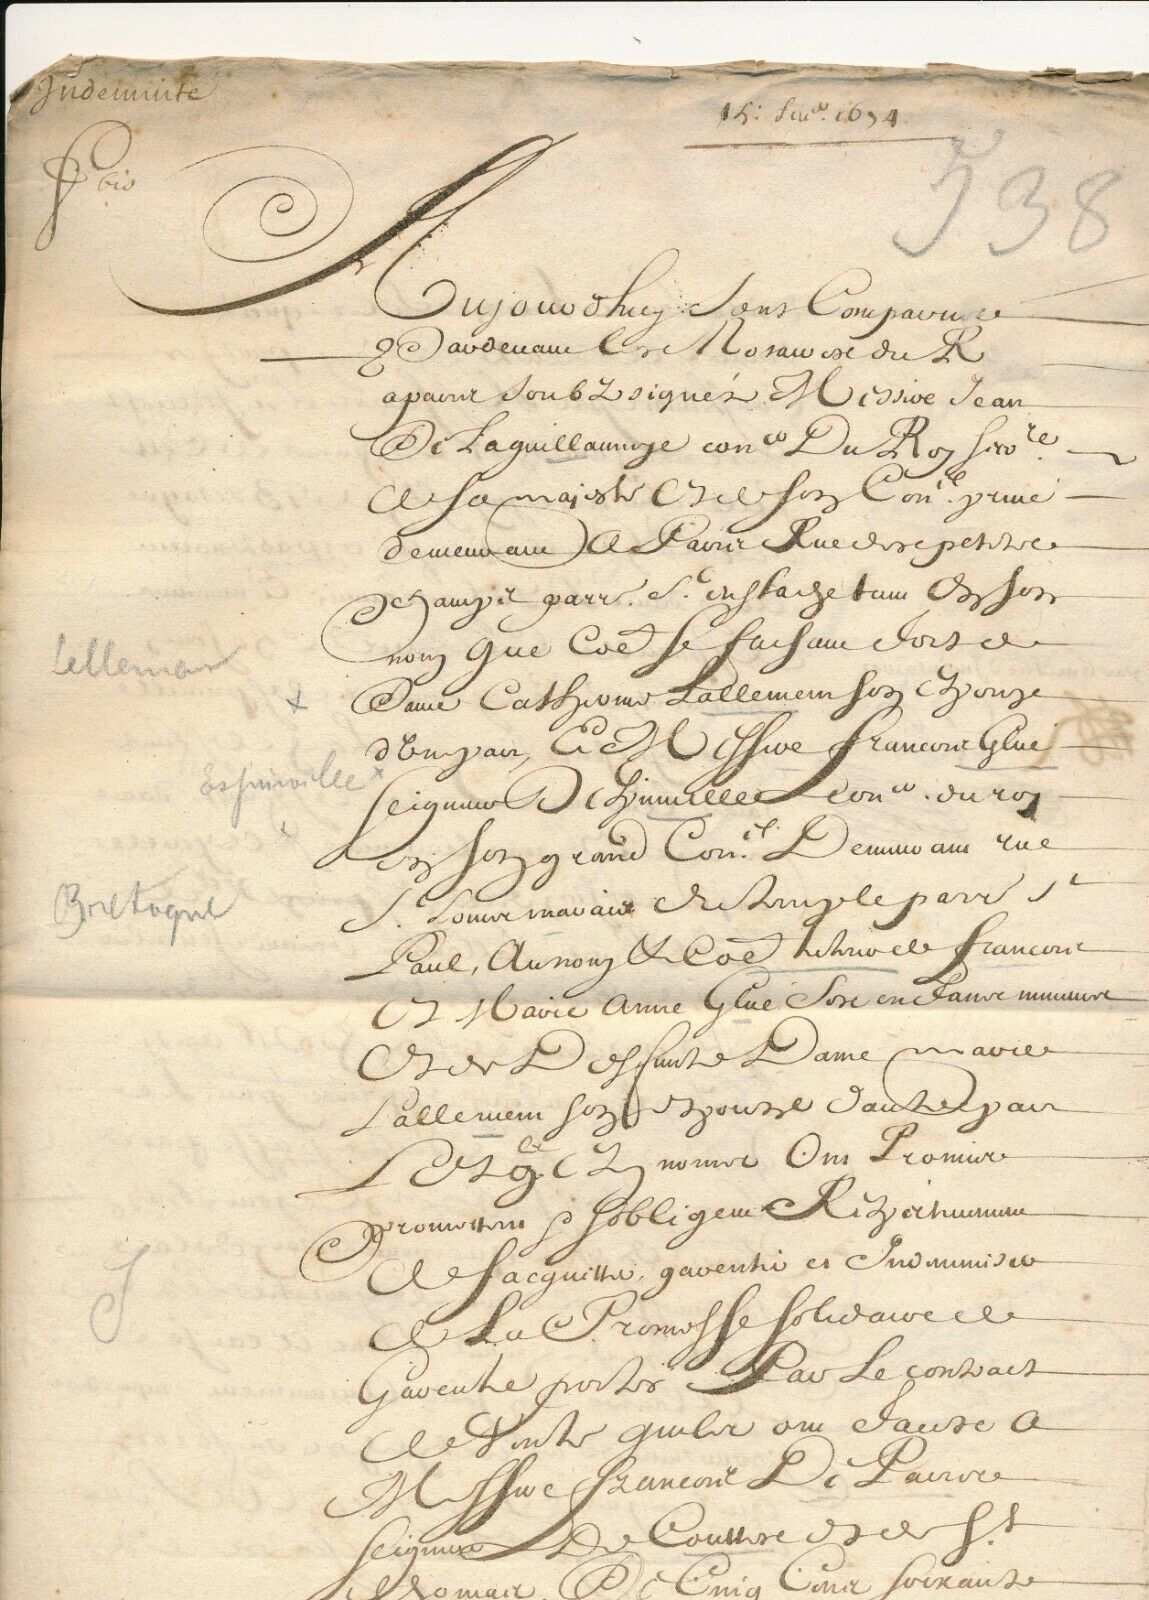 Indemnité
15: 1654
538
bis
Aujourdhuy sont Comparus
pardevant les Notaires du R
a paris soubzsignez Messire Jean
De Laguillaumye con.er Du Roy secre.re
de sa majesté et de son Con.el privé
demeurant a Paris Rue des petits
champs parr. St. eustache tant en son
nom que Coe se faisant fort de
Lallemen
Dame Catherine Lallement son espouze
d'une part, Et Messire francois Glué
Espinville
seigneur De Espinville con.er du roy
en son grand Con.el Demeurant rue
St. Louis marais du temple parr St
Bretagne
Paul, Au nom & Coe de francois
Et Marie Anne Glué ses enfans mineurs
Et de Deffunte Dame marie
Lallement son espouze d'autre part
Lesq.lz Es noms Ont Promis
promettent & sobligent Respectivement
de sacquitter, garentir et Indemniser
de La Promesse solidaire de
Garentie portée Par Le contract
de Vente quils ont faite A
Messire francois De Paris
seigneur De et de St
De Cinq Cens soixante